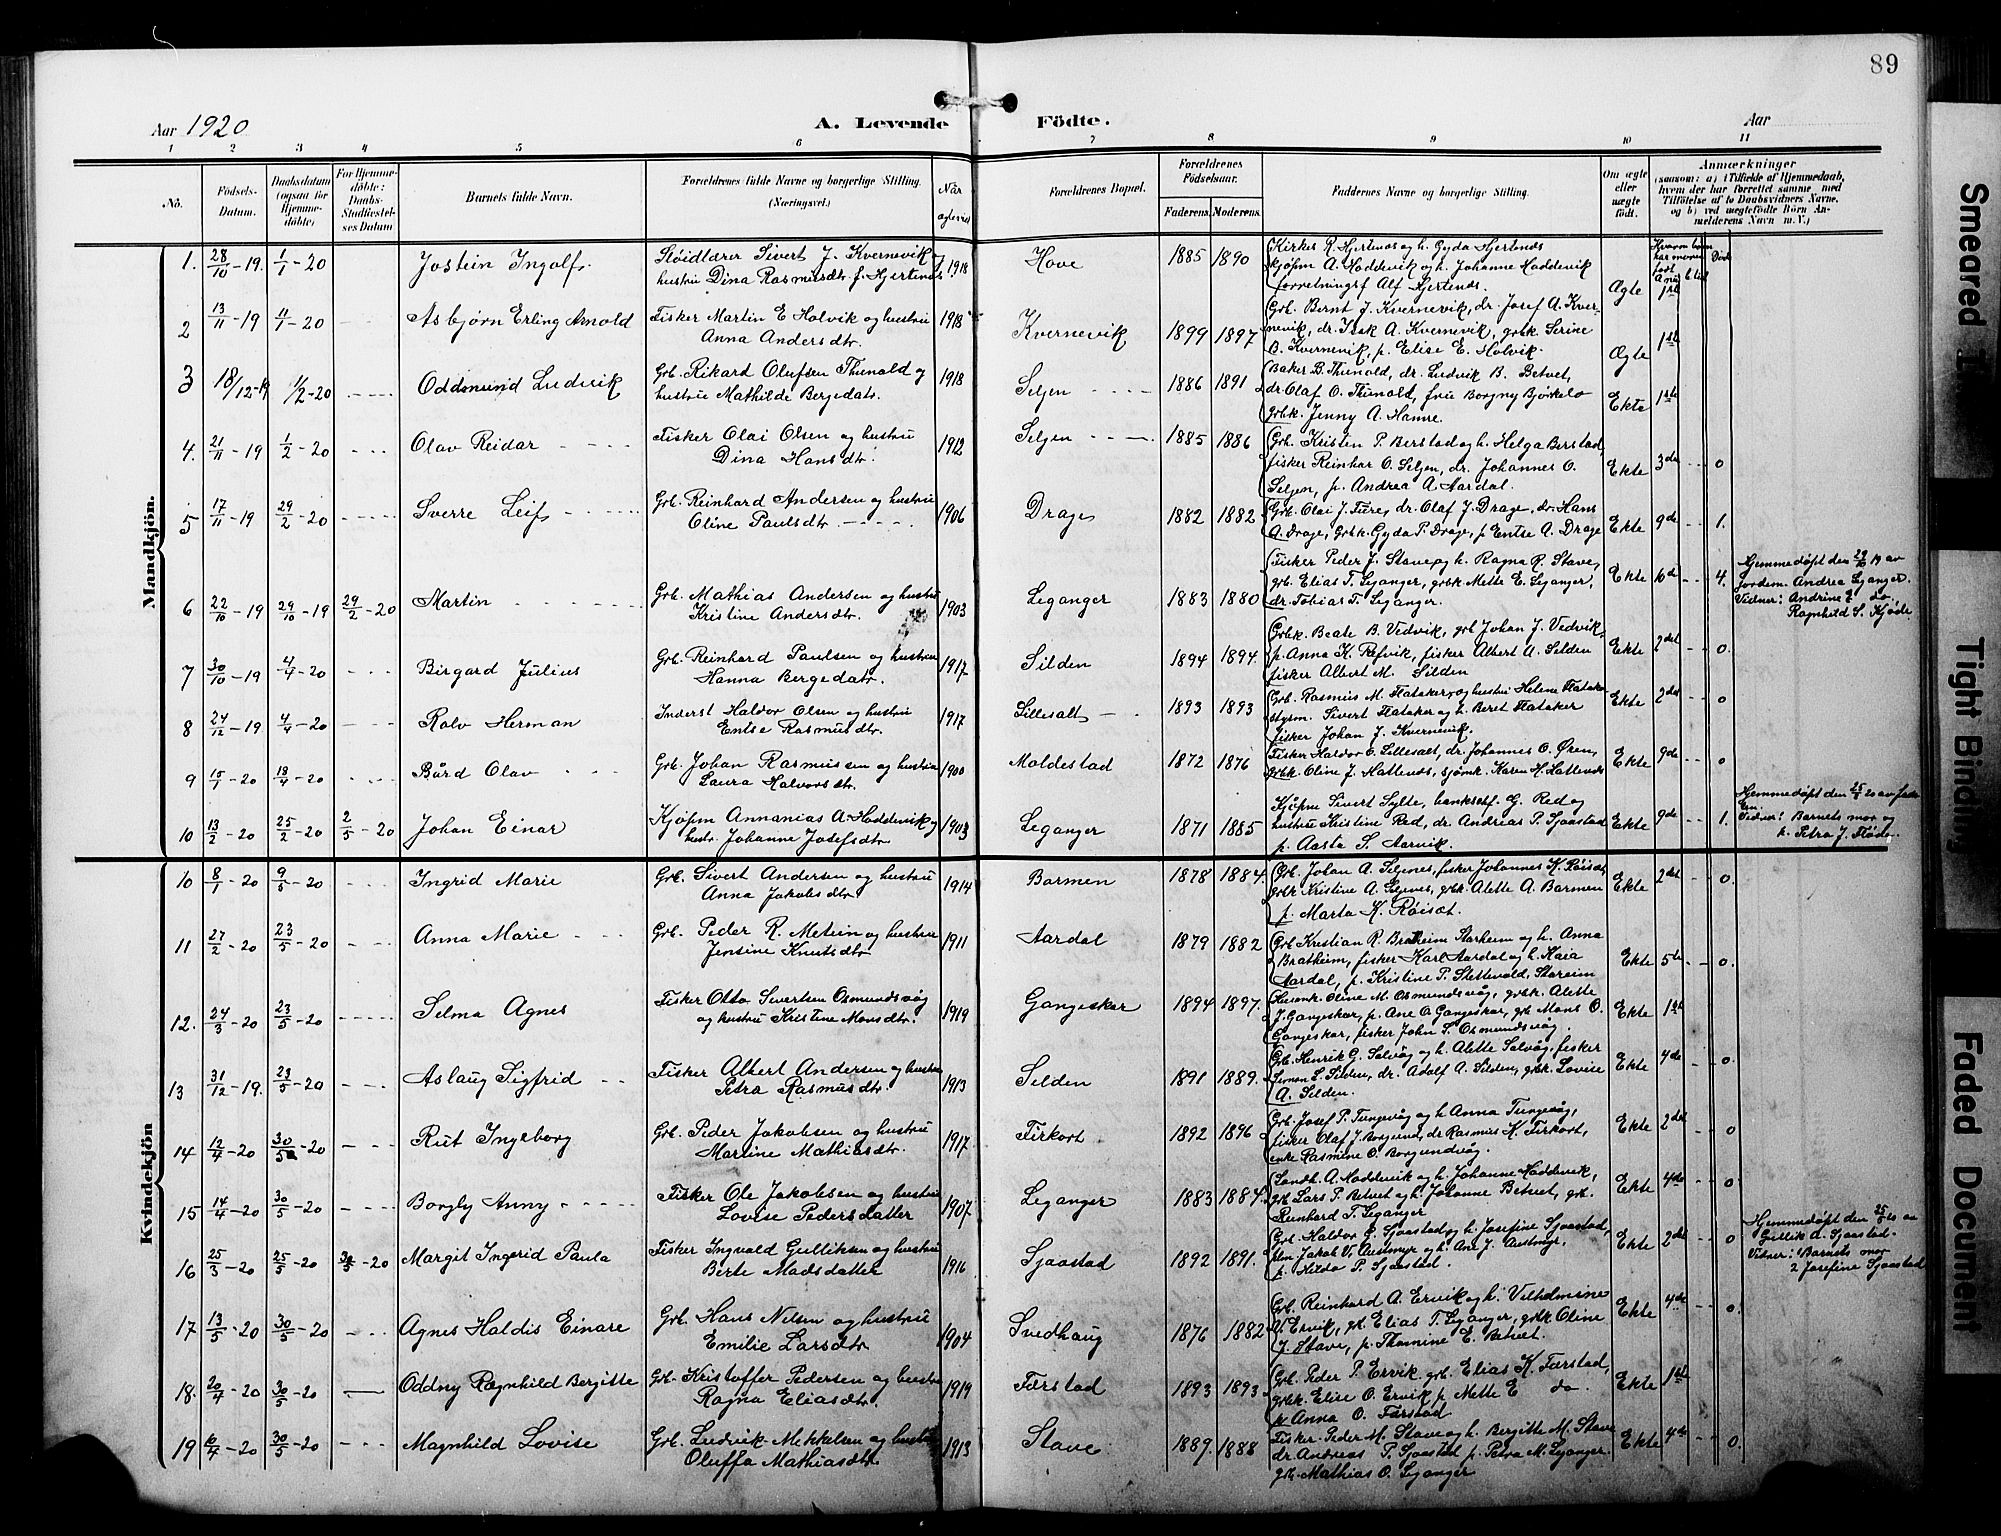 89
Aar 1920
A. Levende Födte.
Aar
1 2 3 4 5 6 7 8 9 10 11
No.
Födsels-Datum.
Daabsdatum (ogsaa for Hjemme-döbte)
For Hjemme-döbte: Daabs-Stadfæstel-ses Datum
Barnets fulde Navn.
Forældrenes fulde Navne og borgerlige Stilling.
(Næringsvei.)
Når
Forældrenes Bopæl.
Forældrenes Födselsaar.
Faderens. Moderens.
Faddernes Navne og borgerlige Stilling.
Om ægte eller uægte födt.
Anmærkninger
(saasom: a) i Tilfælde af Hjemmedaab, hvem der har forrettet samme, med Tilföielse af to Daabsvidners Navne, og b) ved uægtefödte Börn An-melderens Navn m. V.)
Mandkjön.
1. 28/10-19. 1/1-20 Jostein Ingolf Sløidlærer Sivert J. Kvernevik og
hustru Dina Rasmusdtr. f. Hjertenes 1918 Hove 1885 1890 Kirkes. R. Hjertenes og h. Gyda Hjertenes
kjøpm A. Haddevik og h. Johanne Haddevik
forretningsf Alf Hjertenes. Ægte 1ste
2 13/11-19 11/1-20 Asbjørn Erling Arnold Fisker Martin E Holvik og hustru
Anna Andersdtr 1918 Kvernevik 1899 1897 Grb. Bernt J. Kvernevik, dr. Josef A. Kver-
nevik, dr. Isak A. Kvernevik, grbk. Serine
B. Kvernevik, p. Elise E. Holvik. Ægte 1ste
3 18/12-19 1/2-20 Oddmund Ludvik Grb. Rikard Olufsen Thunold og
hustru Mathilde Bergedatr. 1918 Seljen 1886 1891 Baker B. Thunold, dr. Ludvik B. Betvet,
dr Olaf O. Thunold, fru Borgny Bjørkelo
grbk. Jenny A. Hamre. Ekte 1ste
4. 21/11-19 1/2-20 Olav Reidar Fisker Olai Olsen og hustru
Dina Hansdtr. 1912 Seljen 1885 1886 Grb. Kristen P. Berstad og h. Helga Berstad,
fisker Reinhar O. Seljen, dr. Johannes O.
Seljen, p. Andrea A. Aardal. Ekte 3de 0
5 17/11-19 29/2-20 Sverre Leif Grb. Reinhard Andersen og hustru
Oline Paulsdtr 1906 Drage 1882 1882 Grb. Olai J. Fure, dr. Olaf J. Drage, dr. Hans
A. Drage, Grbk. Gyda P. Drage, p Entse A. Drage Ekte 9de 1.
6 22/10-19 29/10-19 29/2-20 Martin Grb. Mathias Andersen og hustru
Kristine Andersdtr. 1903 Leganger 1883 1880 Fisker Peder J. Stave og h. Ragna R. Stave,
grb. Elias T. Leganger, grbk Mette E. Leganger,
dr. Tobias T. Leganger. Ekte 10de 4. Hjemmedøpt den 29/10 19 av
jordem. Andrea Leganger.
Vidner: Andrine do.
Ragnhild S. Kjøde.
7 30/10-19 4/4-20 Birgard Julius Grb. Reinhard Paulsen og hustru
Hanna Bergedatr. 1917 Silden 1894 1894. Grbk. Beate B. Vedvik, grb Johan J. Vedvik,
p. Anna K. Refvik, fisker Albert A. Silden
fisker Albert M. Silden Ekte 2det 0.
8 24/12-19 4/4-20 Rolv Herman Inderst Haldor Olsen og hustru
Entse Rasmusdtr. 1917 Lillesalt 1893 1893 Grb. Rasmus M. Flataker, og hustru Helene Flataker
styrm. Sivert Flataker og h. Beret Flataker
fisker Johan J. Kvernevik. Ekte 2det 0
9 15/1-20 18/4-20 Bård Olav Grb. Johan Rasmussen og hustru
Laura Halvorsdtr. 1900 Moldestad 1872 1876 Fisker Haldor O. Lillesalt, dr. Johannes O. Øren,
grbk. Oline J. Hattenes, sjømk. Karen M. Hattenes Ekte 9de 0
10 13/2-20 25/2-20 2/5-20 Johan Einar Kjøpm Annanias A. Haddevik og
hustr. Johanne Josefsdtr. 1903 Leganger 1871 1885 Kjøpm Sivert Sylte, bankchf. G. Red og
hustru Kristine Red, dr. Andreas P. Sjaastad
p. Aasta S. Aarvik. Ekte 9de 1. Hjemmedøpt den 25/2 20 av
Vidner: Barnets mor og
p. Petra J. Fløde.
Kvindekjön
10 8/1-20 9/5-20 Ingrid Marie Grb. Sivert Andersen og hustru
Anna Jakobsdtr. 1914 Barmen 1878 1884. Grb. Johan A. Seljenes, fisker Johannes K. Røiset,
grbk Kristine A. Seljenes, grbk. Alette A. Barmen
p. Marta K. Røiset. Ekte 2det 0.
11 27/2-20 23/5-20 Anna Marie Grb. Peder R. Metein og hustru
Jensine Knutsdtr 1911 Aardal 1879 1882 Grb Kristian R. Bratheim Starheim og h. Anna
Bratheim, fisker Karl Aardal og h. Kaia
Aardal, p. Kristine P. Slettevold, Stareim Ekte 5te 0.
12. 24/3-20 23/5-20 Selma Agnes Fisker Otto Sivertsen Osmundsvåg
og hustru Kristine Monsdtr. 1919 Gangeskar 1894 1897. Husmk. Oline M. Osmundsvåg, grbk. Alette
J. Gangeskar, p. Ane O. Gangeskar, grb Mons O.
Gangeskar, fisker John S. Osmundsvåg. Ekte 1ste 0
13 31/12-19. 23/5-20 Aslaug Sigfrid Fisker Albert Andersen og hustru
Petra Rasmusdtr. 1913 Selden 1891 1889. Grb. Henrik G. Salvåg og h. Alette Salvåg, fisker
Simon S. Silden, dr. Adolf A. Silden, grbk. Lovise
A. Selden. Ekte 4de 0.
14 12/4-20 30/5-20 Rut Ingeborg Grb. Peder Jakobsen og hustru
Martine Mathiasdtr. 1917 Firkort 1892 1896 Grb. Josef P. Tungevåg og h Anna Tungevåg,
fisker Olaf J. Borgund, dr Rasmus K. Firkort,
enke Rasmine O. Borgundvåg. Ekte 2det 0
15 14/4-20 30/5-20 Borgly Anny Fisker Ole Jakobsen og hustru
Lovise Pedersdatter 1907 Leganger 1883 1884. Landh. A. Haddevik og h Johanne Haddevik,
grb Lars P. Betvet og h. Johanne Betvet, grb.
Reinhard T. Leganger Ekte 4de 0
16 25/3-20 25/5-20 30/5-20 Margit Ingerid Paula Fisker Ingvald Gulliksen og hustru
Berte Madsdatter 1916 Sjaastad 1892 1891. Grb. Haldor G. Sjaastad og h. Josefine Sjaastad,
Jakob V. Austmyr og h. Ane J. Austmyr,
p. Hilda P. Sjaastad. Ekte 2det 0 Hjemmedøpt den 25/5 20 av
Gullik A. Sjaastad.
Vidner: 1 Barnets mor
2 Josefine Sjaastad
17 13/5-20 30/5-20 Agnes Haldis Einare Grb. Hans Nilsen og hustru
Emilie Larsdtr 1904 Svedhaug 1876 1882 Grb. Reinhard A. Ervik og h. Vilhelmine
A. Ervik, grb. Elias T. Leganger, grbk Oline
J. Stave, p. Thomine E. Betvet. Ekte 4de 0.
18. 20/4-20 30/5-20 Oddny Ragnhild Bergitte Grb. Kristoffer Pedersen og hustru
Ragna Eliasdtr. 1919 Færstad 1893 1893 Grb. Peder P. Ervik grb. Elias K. Færstad,
grbk. Elise O. Ervik p. Mette E do.
p Anna O. Færstad Ekte 1ste
19 6/4-20 30/5-20 Magnhild Lovise Grb. Ludvik Mekkelsen og hustru
Oluffa Mathiasdtr 1913 Stave 1887. 1888 Fisker Peder M. Stave og h. Bergitte M. Stave
dr. Andreas P. Sjaastad p. Petra M. Leganger.
grb. Mathias O. Leganger Ekte 4de 0.
Smeared
Tight Binding
Faded Document